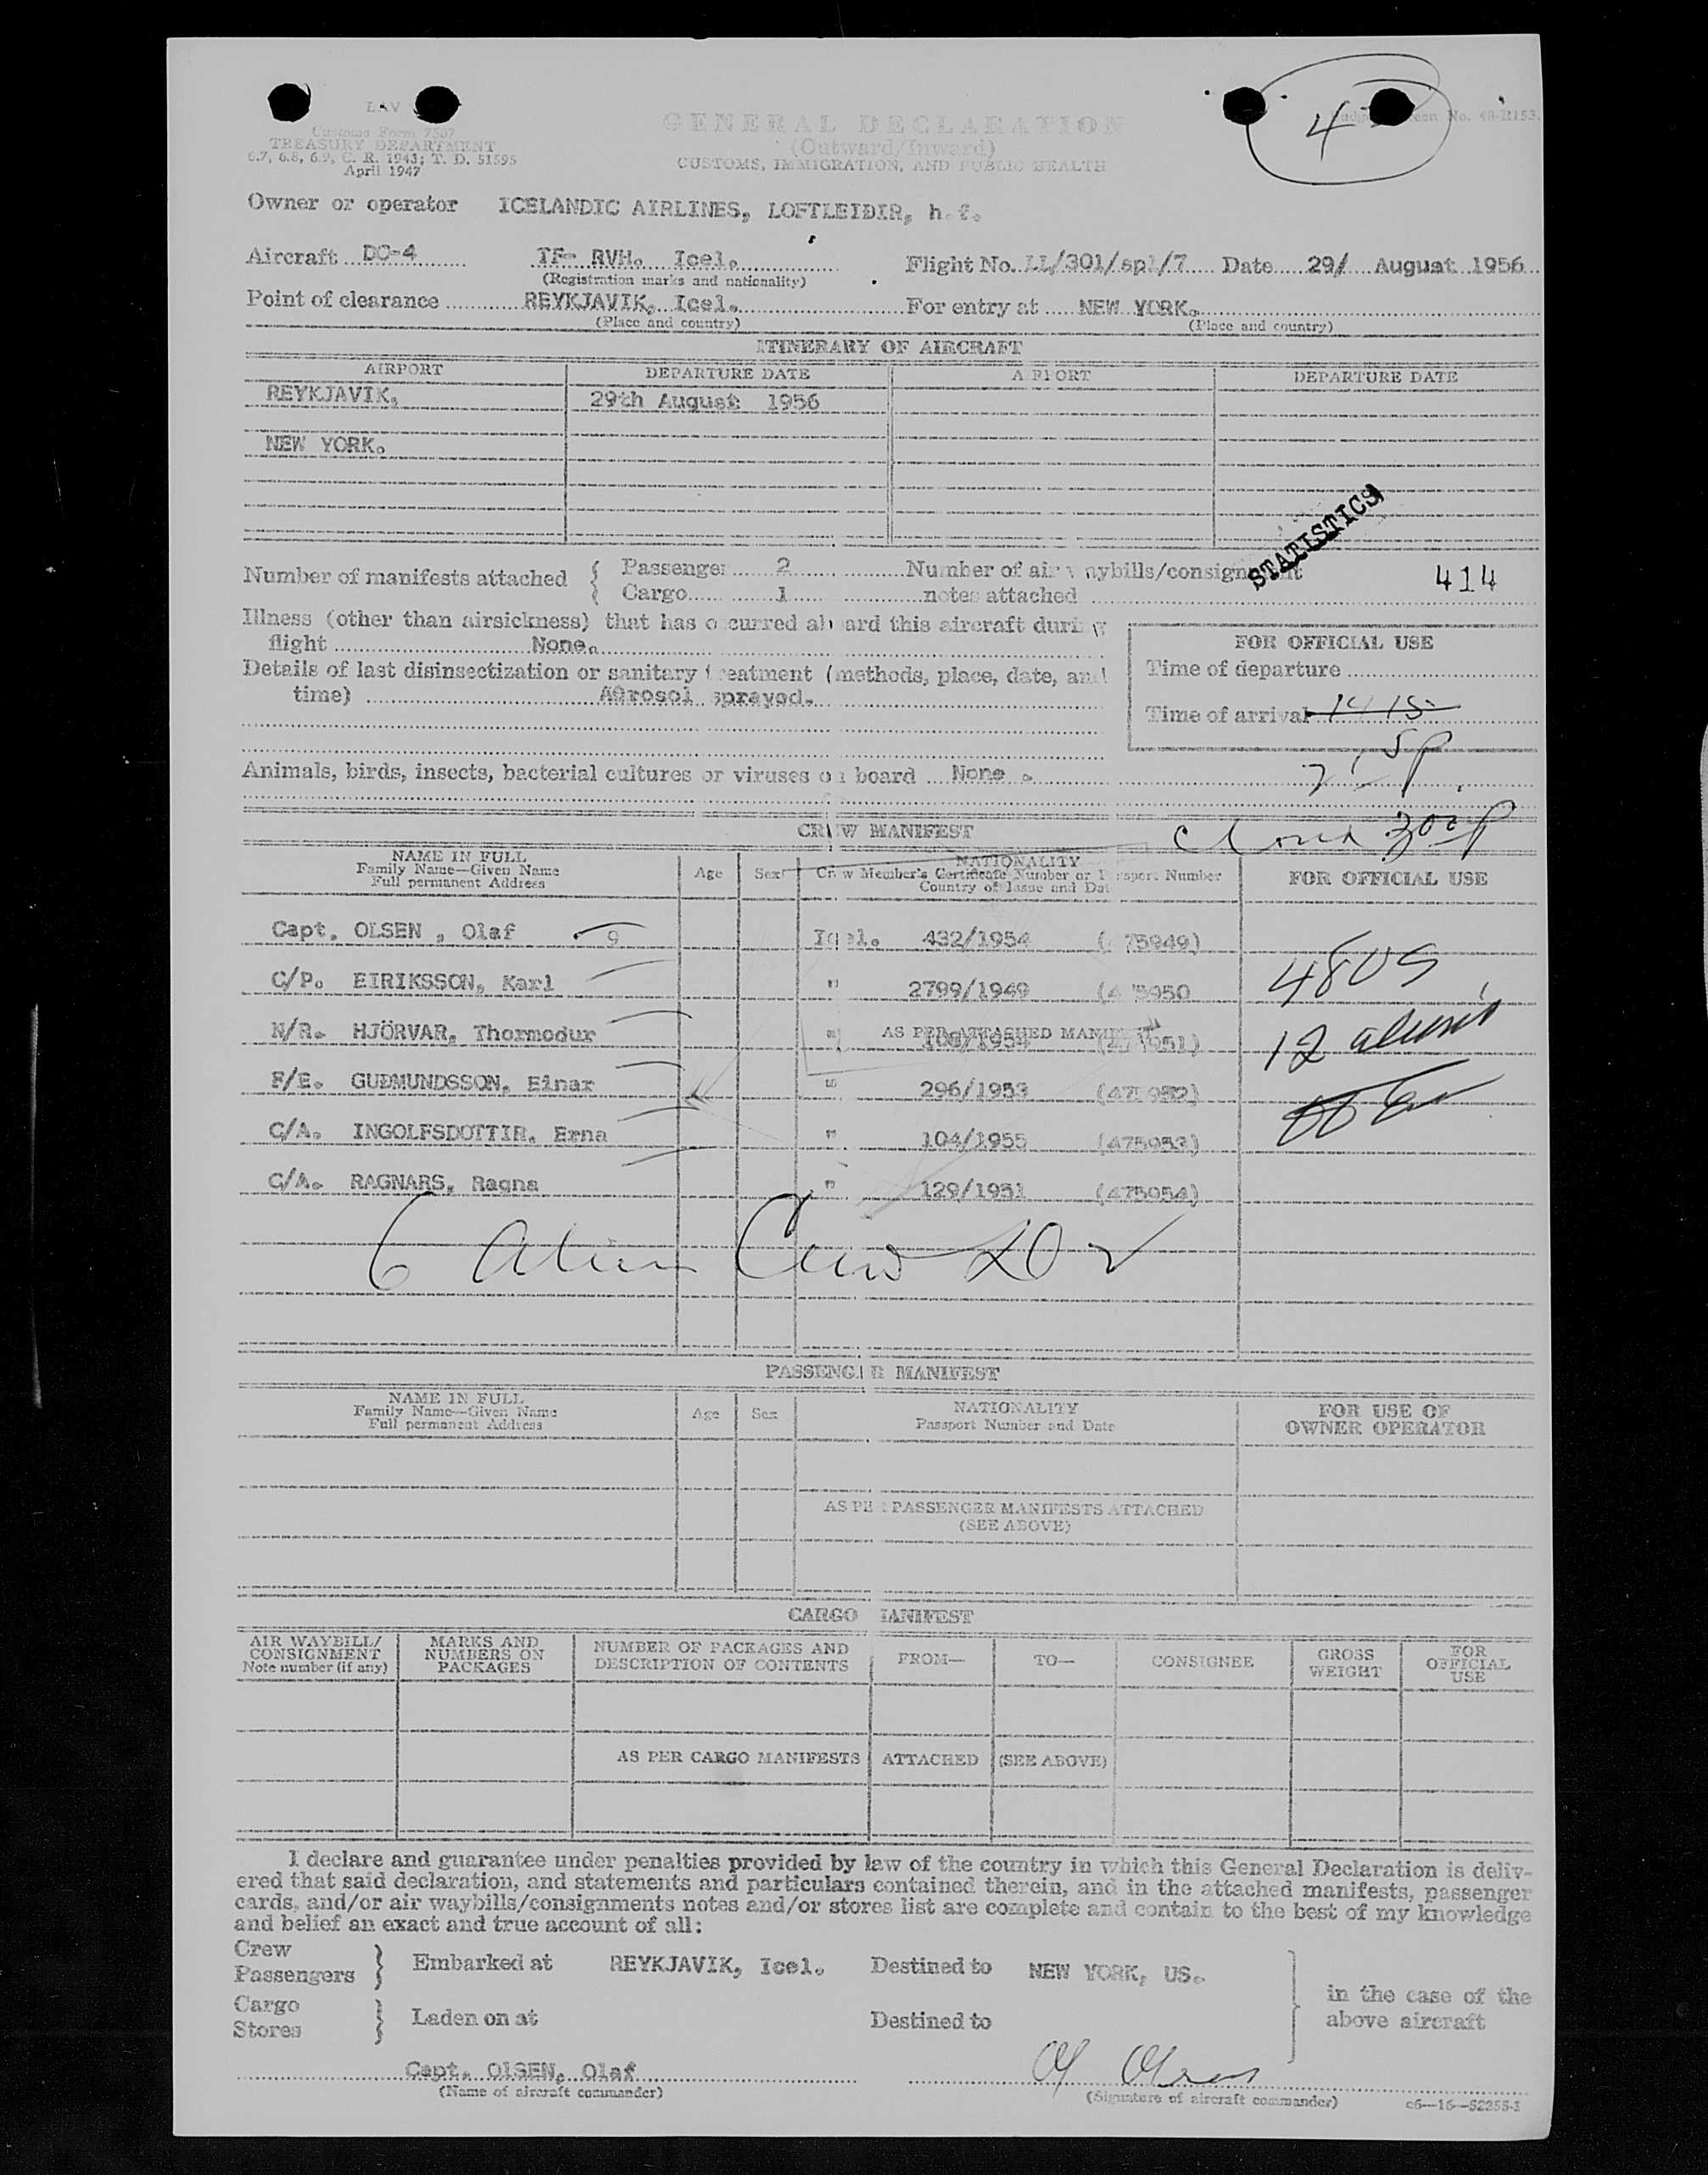 LAV
Customs Form 7507
TREASURY DEPARTMENT
6.7, 6.8, 6.9, C. R. 1943; T. D. 51595
April 1947
GENERAL DECLARATION
(Outward/Inward)
CUSTOMS, IMMIGRATION, AND PUBLIC HEALTH
4
No. 48-R153.
Owner or operator ICELANDIC AIRLINES, LOFTLEIÐIR, h.f.
Aircraft DC-4 TF- RVH. Icel. Flight No. LL/301/spl/7 Date 29/ August 1956
(Registration marks and nationality)
Point of clearance REYKJAVIK, Icel. For entry at NEW YORK.
(Place and country) (Place and country)
ITINERARY OF AIRCRAFT
AIRPORT DEPARTURE DATE AIRPORT DEPARTURE DATE
REYKJAVIK, 29th August 1956
NEW YORK.
STATISTICS
Number of manifests attached { Passenger 2 Number of air waybills/consignment 414
Cargo 1 notes attached
Illness (other than airsickness) that has occurred aboard this aircraft during
flight None.
FOR OFFICIAL USE
Details of last disinsectization or sanitary treatment (methods, place, date, and
Time of departure
time) Aërosol sprayed.
Time of arrival 1415
Animals, birds, insects, bacterial cultures or viruses on board None .
CREW MANIFEST
300p
NAME IN FULL
Family Name—Given Name
Full permanent Address
Age Sex
NATIONALITY
Crew Member's Certificate Number or Passport Number
Country of Issue and Date
FOR OFFICIAL USE
Capt. OLSEN , Olaf 9 Icel. 432/1954 (475949)
C/P. EIRIKSSON, Karl " 2799/1949 (475950
4 8 US
N/R. HJÖRVAR, Thormodur " 106/1954 (475951)
AS PER ATTACHED MANIFEST
12 aliens
F/E. GUÐMUNDSSON, Einar " 296/1953 (475952)
C/A. INGOLFSDOTTIR, Erna " 104/1955 (475953)
C/A. RAGNARS, Ragna " 129/1951 (475954)
6 Alien Crew
PASSENGER MANIFEST
NAME IN FULL
Family Name—Given Name
Full permanent Address
Age Sex
NATIONALITY
Passport Number and Date
FOR USE OF
OWNER OPERATOR
AS PER PASSENGER MANIFESTS ATTACHED
(SEE ABOVE)
CARGO MANIFEST
AIR WAYBILL/
CONSIGNMENT
Note number (if any)
MARKS AND
NUMBERS ON
PACKAGES
NUMBER OF PACKAGES AND
DESCRIPTION OF CONTENTS
FROM— TO— CONSIGNEE
GROSS
WEIGHT
FOR
OFFICIAL
USE
AS PER CARGO MANIFESTS ATTACHED (SEE ABOVE)
I declare and guarantee under penalties provided by law of the country in which this General Declaration is deliv-
ered that said declaration, and statements and particulars contained therein, and in the attached manifests, passenger
cards, and/or air waybills/consignments notes and/or stores list are complete and contain to the best of my knowledge
and belief an exact and true account of all:
Crew
Passengers } Embarked at REYKJAVIK, Icel. Destined to NEW YORK, US.
Cargo
Stores } Laden on at Destined to
in the case of the
above aircraft
Capt. OlSEN, Olaf
Ol Olsen
(Name of aircraft commander) (Signature of aircraft commander)
c6—16—52255-1